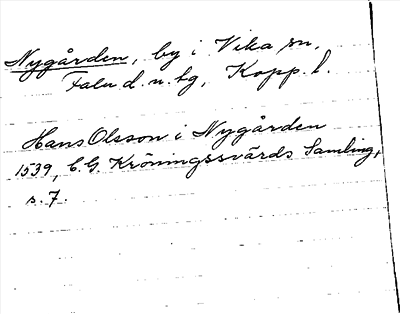 Nygården, by i Vika sn,
Falu d. n. tg, Kopp. l.
Hans Olsson i Nygården
1539, C.G. Kröningssvärds Samling,
s. 7.